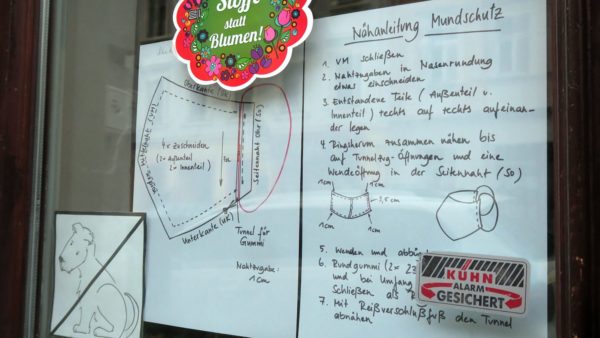 Stoffe
statt
Blumen!
Oberkante (OK)
4x Zuschneiden
(2x Außenteil
2x Innenteil)
Seitennaht Ohr (SO)
Unterkante (UK)
Tunnel für
Gummi
Nahtzugabe:
1cm
Nähanleitung Mundschutz
1. VM schließen
2. Nahtzugaben in Nasenrundung
etwas einschneiden
3. Entstandene Teile (Außenteil u.
Innenteil) rechts auf rechts aufeinan-
der legen
4. Ringsherum zusammen nähen bis
auf Tunnelzug-Öffnungen und eine
Wendeöffnung in der Seitennaht (SO)
1cm 1cm
1cm 1cm
5. Wenden und
6. Rundgummi (2x
und bei Umfang
Schließen als
7. Mit Reißverschlußfuß den Tunnel
abnähen
KÜHN
ALARM
GESICHERT